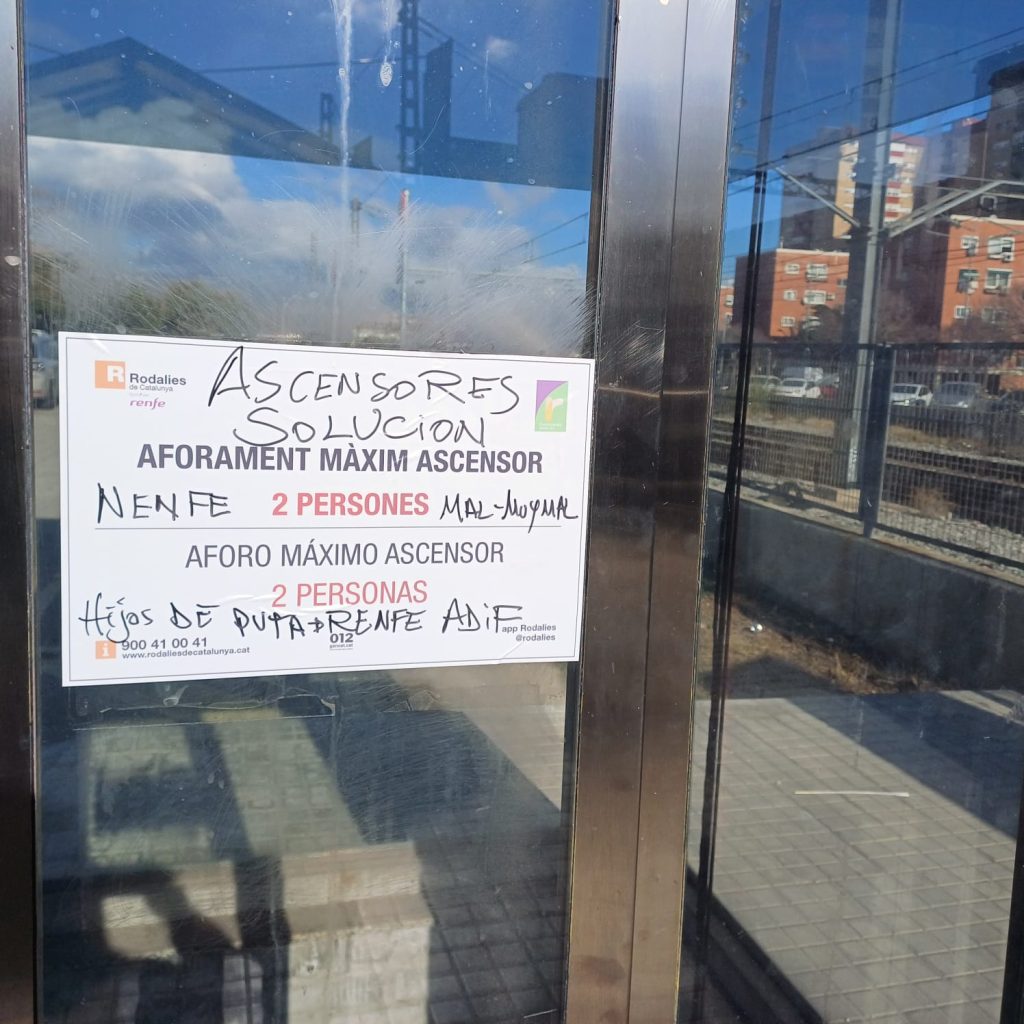 R Rodalies
de Catalunya
renfe
ASCENSORES
SOLUCION
AFORAMENT MÀXIM ASCENSOR
NENFE 2 PERSONES MAL-MUY MAL
AFORO MÁXIMO ASCENSOR
2 PERSONAS
HIJOS DE PUTA→RENFE ADIF
i 900 41 00 41
www.rodaliesdecatalunya.cat
012
gencat.cat
app Rodalies
@rodalies